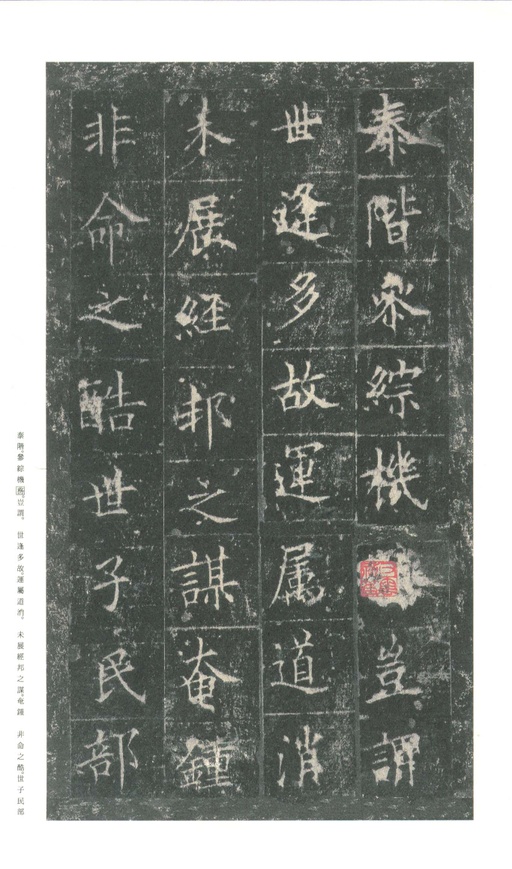 泰階叅綜機豈謂
世逢多故運属道消
未展經邦之謀奄鍾
非命之酷世子民部
泰階叅綜機務豈謂 世逢多故運屬道消 未展經邦之謀奄鍾 非命之酷世子民部